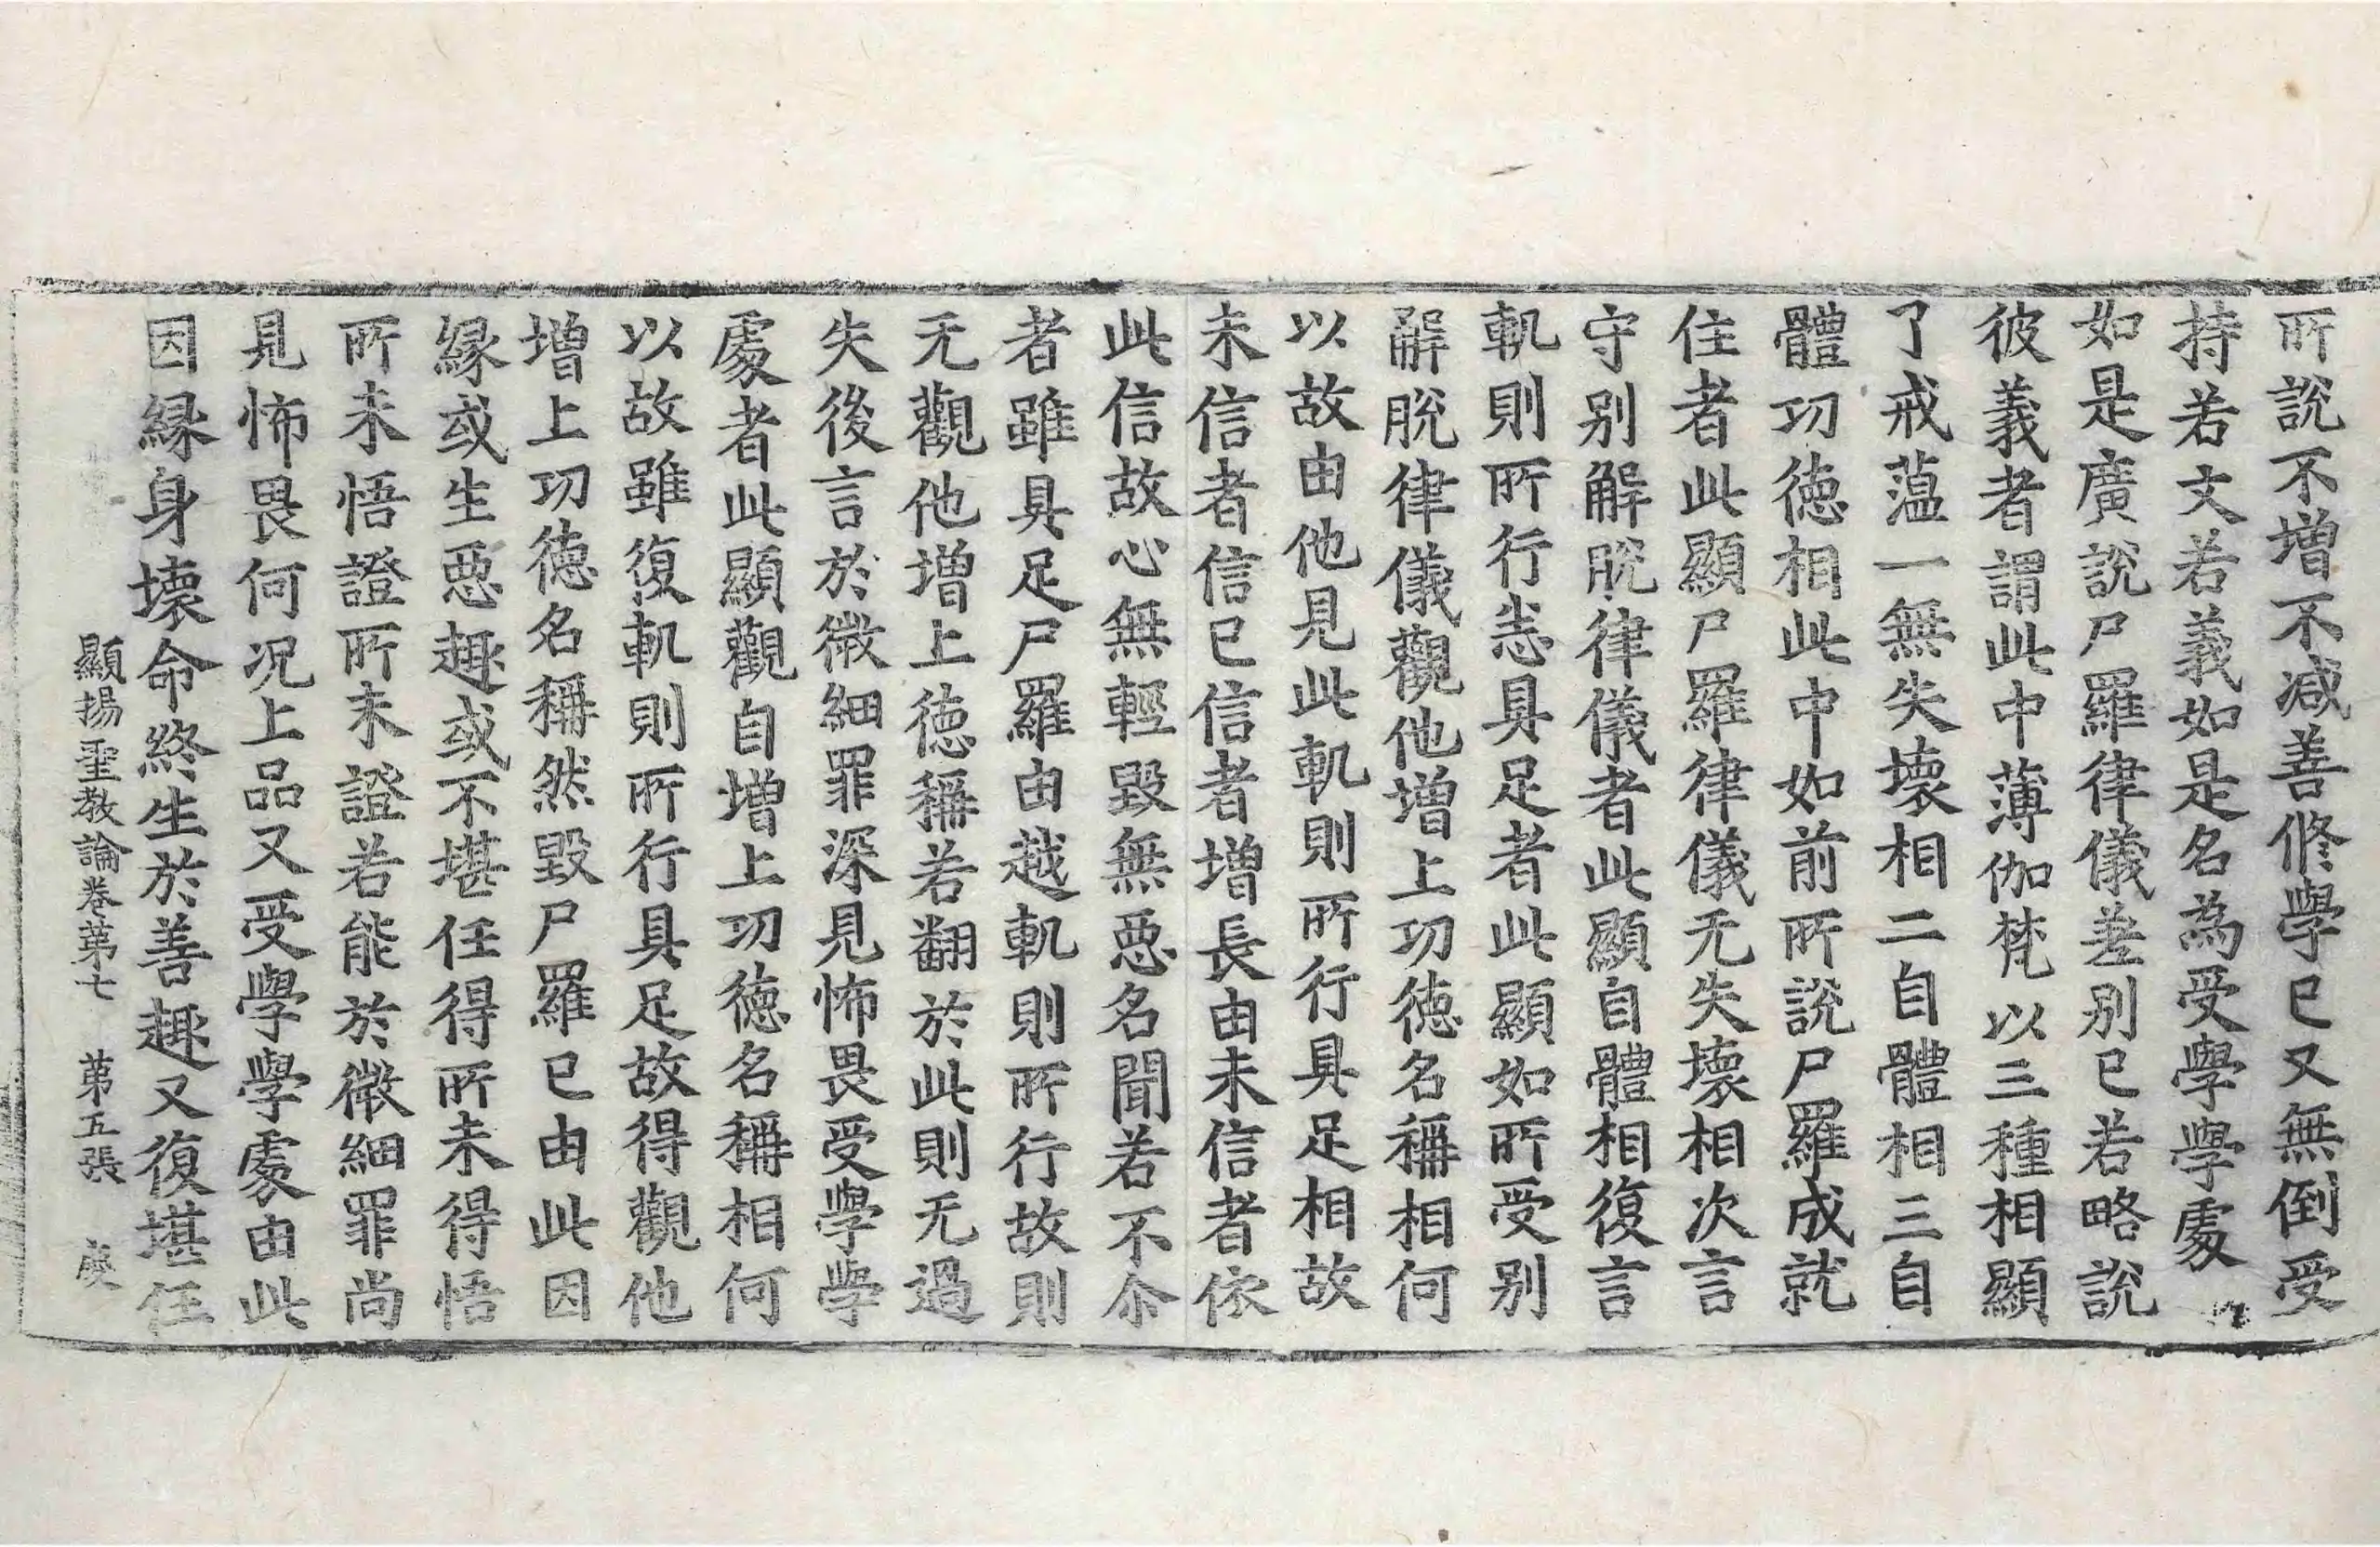 所說不增不减善修學已又無倒受
持若文若義如是名為受學學處
如是廣說尸羅律儀差別已若略說
彼義者謂此中薄伽梵以三種相顯
了戒蕰一無失壞相二自體相三自
體功德相此中如前所說尸羅成就
住者此顯尸羅律儀无失壞相次言
守别解脫律儀者此顯自體相復言
軌則所行恚具足者此顯如所受别
解脫律儀觀他增上功德名稱相何
以故由他見此軌則所行具足相故
未信者信已信者增長由未信者依
此信故心無輕毀無惡名聞若不尒
者雖具足尸羅由越軌則所行故則
无觀他增上德稱若翻於此則无過
失後言於微細罪深見怖畏受學學
處者此顯觀自增上功德名稱相何
以故雖復軌則所行具足故得觀他
增上功德名稱然毀尸羅已由此因
緣或生惡趣或不堪任得所未得悟
所未悟證所未證若能於微細罪尚
見怖畏何况上品又受學學處由此
因緣身壞命終生於善趣又復堪任
顯揚聖教論卷苐七 苐五張